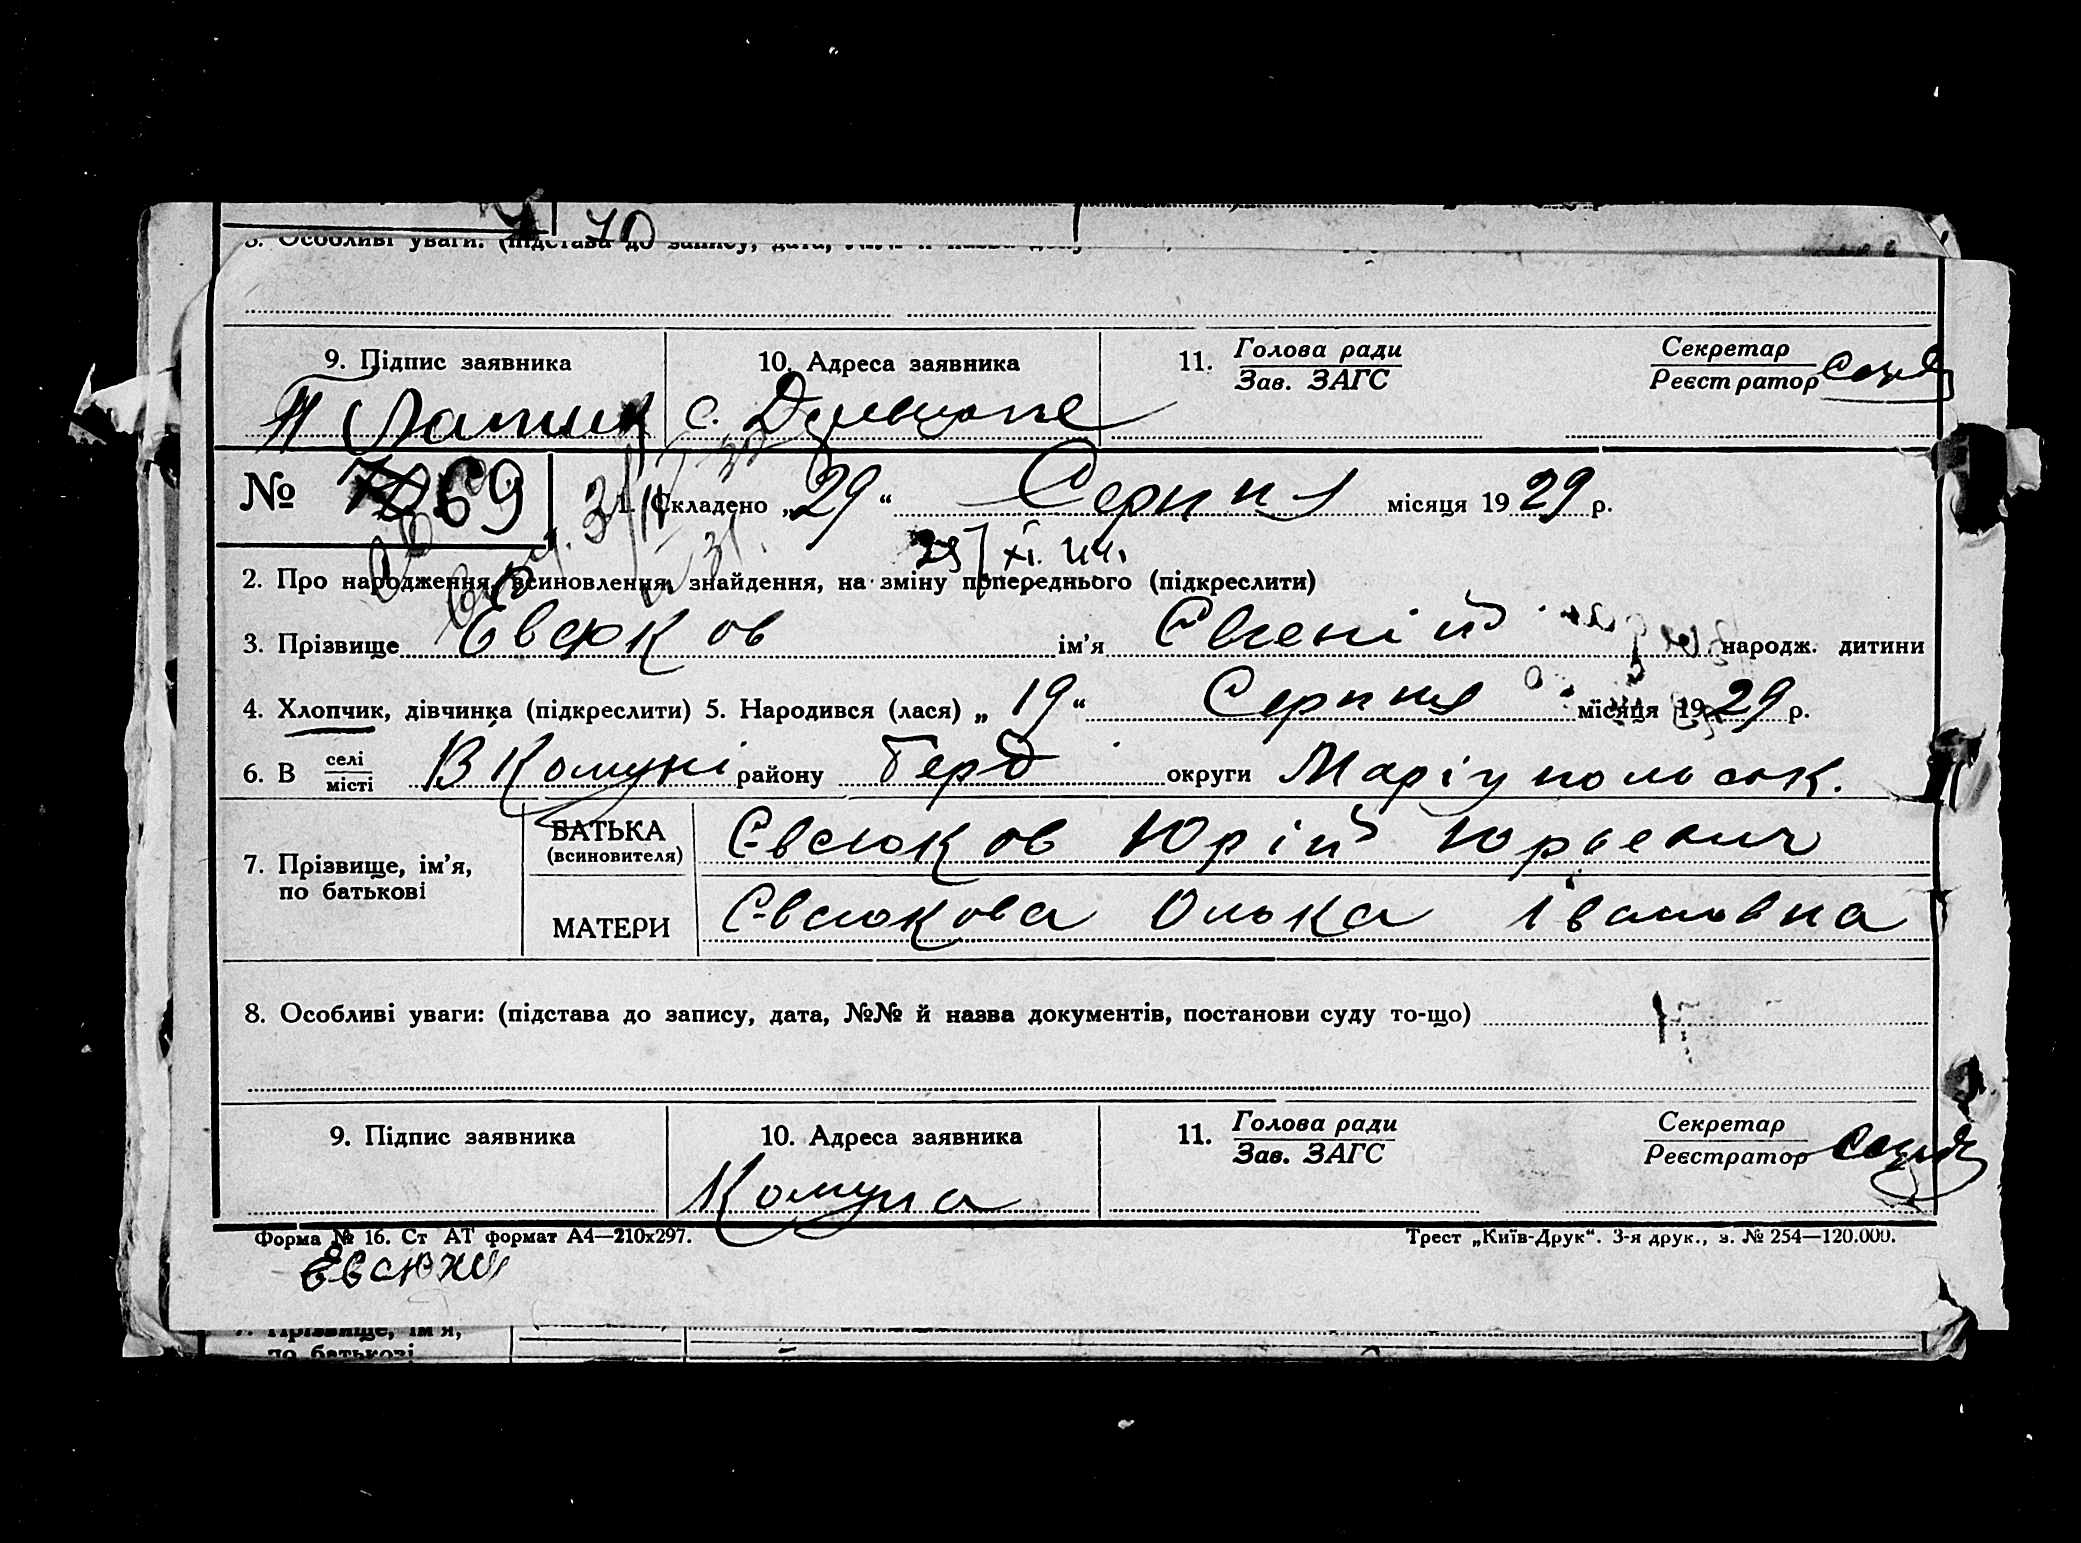 70
8. Особливі уваги: (підстава до запису, дата, №№ й назва
9. Підпис заявника 10. Адреса заявника 11. Голова ради Секретар
Зав. ЗАГС Реєстратор
с.
№ 69 1. Складено „29“ Серпня місяця 1929 р.
2. Про народження, всиновлення, знайдення, на зміну попереднього (підкреслити)
3. Прізвище Евсюков ім’я Євгеній народж. дитини
4. Хлопчик, дівчинка (підкреслити) 5. Народився (лася) „19“ Серпня місяця 1929 р.
6. В селі
місті В Комуні району Берд округи Маріупольськ.
7. Прізвище, ім’я, по батькові
БАТЬКА (всиновителя) Євсюков Юрій Юрьевич
МАТЕРИ Євсюкова Олька Івановна
8. Особливі уваги: (підстава до запису, дата, №№ й назва документів, постанови суду то-що)
9. Підпис заявника 10. Адреса заявника 11. Голова ради Секретар
Зав. ЗАГС Реєстратор
Комуна
Форма № 16. Ст АТ формат А4—210х297. Трест „Київ-Друк“. 3-я друк., з. № 254—120.000.
7. Прізвище, ім’я,
по батькові